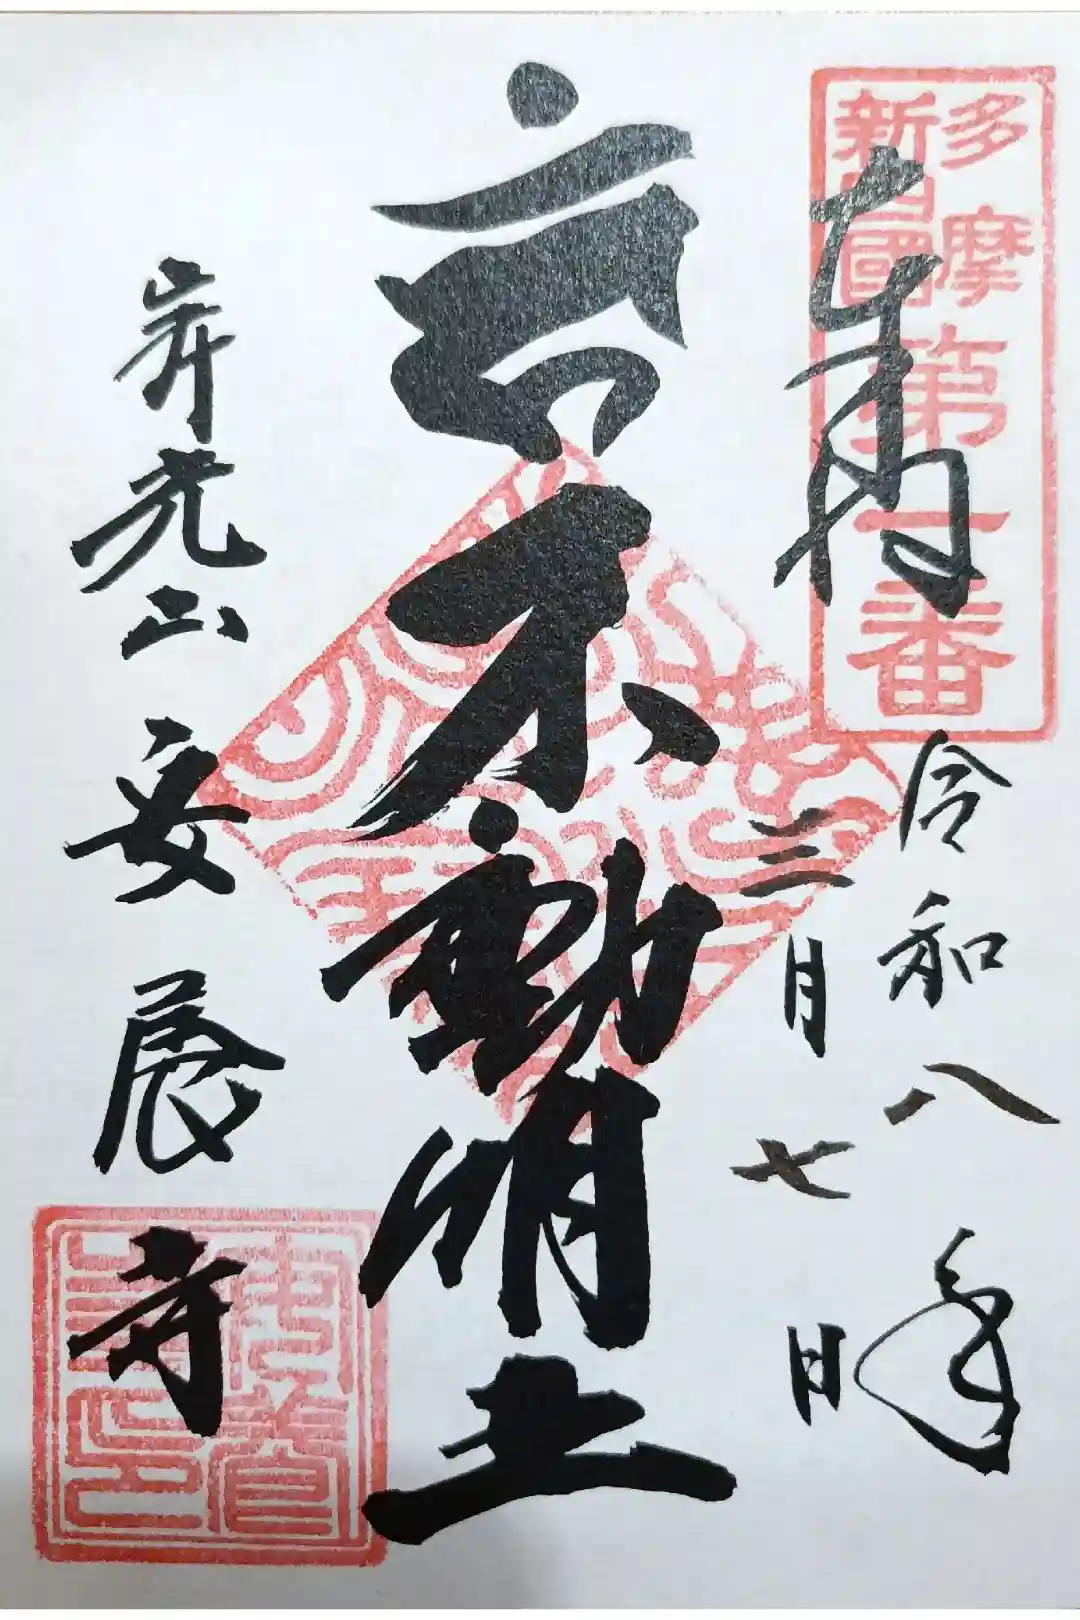 多摩
新四國
第一番
奉拝
令和八年
三月七日
不動明王
光山 安養寺